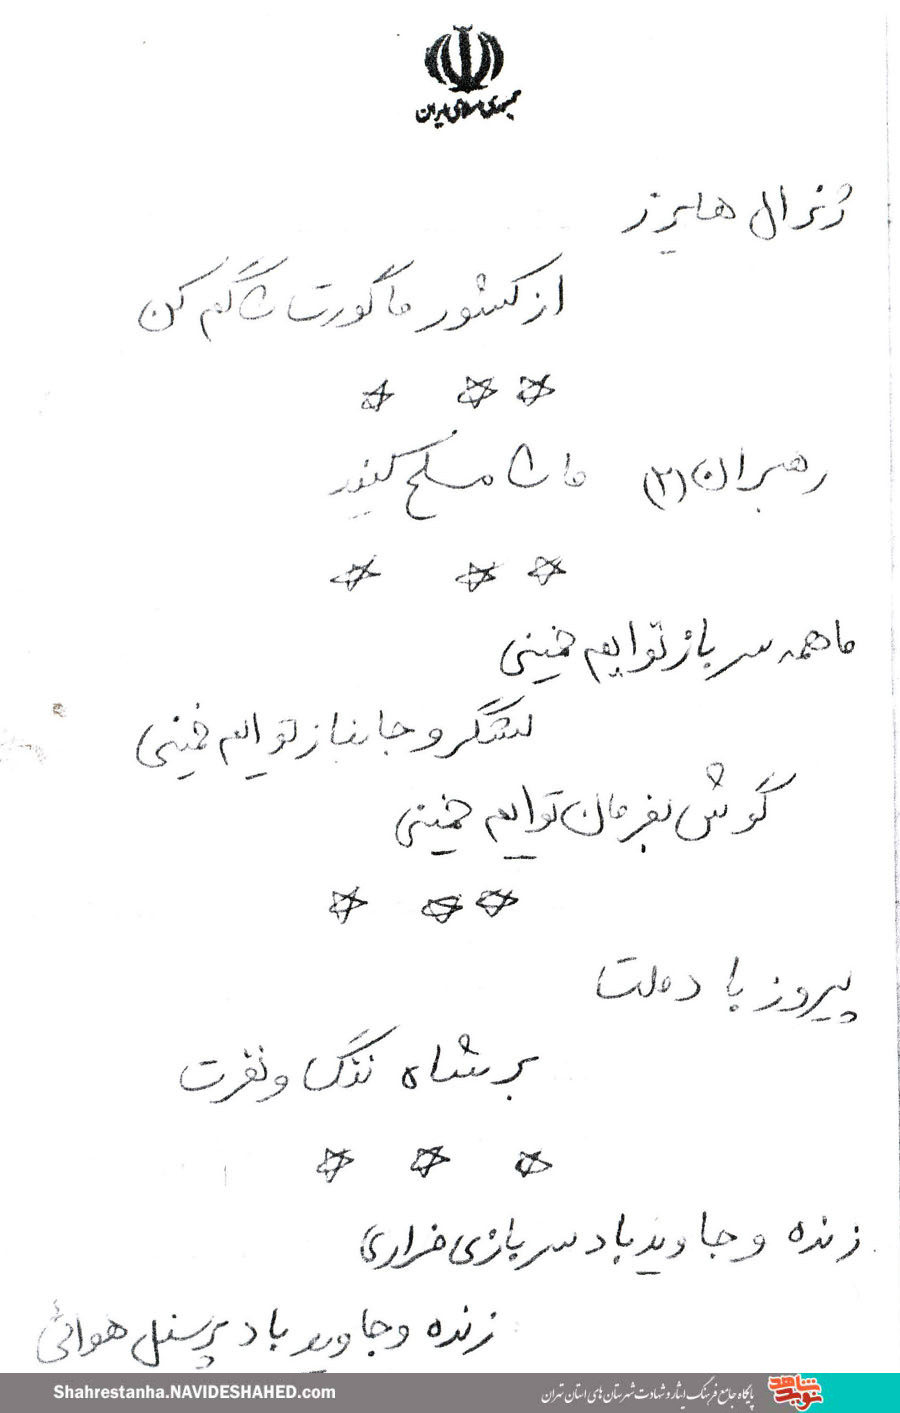 جمهوری اسلامی ایران
ژنرال هایزر
از کشور ما گورت را گم کن
رهبران (۲) ما را مسلح کنید
ما همه سرباز توایم خمینی
لشگر و جانباز توایم خمینی
گوش بفرمان توایم خمینی
پیروز باد ملت
بر شاه ننگ و نفرت
زنده و جاوید باد سربازی فراری
زنده و جاوید باد پرسنل هوائی
Shahrestanha.NAVIDESHAHED.com
پایگاه جامع فرهنگ ایثار و شهادت شهرستان های استان تهران
نوید شاهد